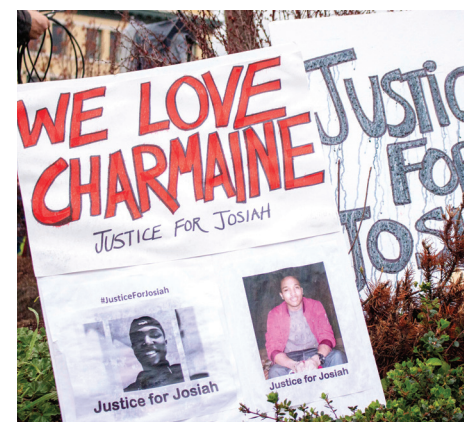 WE LOVE
CHARMAINE
JUSTICE FOR JOSIAH
#JusticeForJosiah
Justice for Josiah
Justice for Josiah
JUSTIC
FOR
JOS